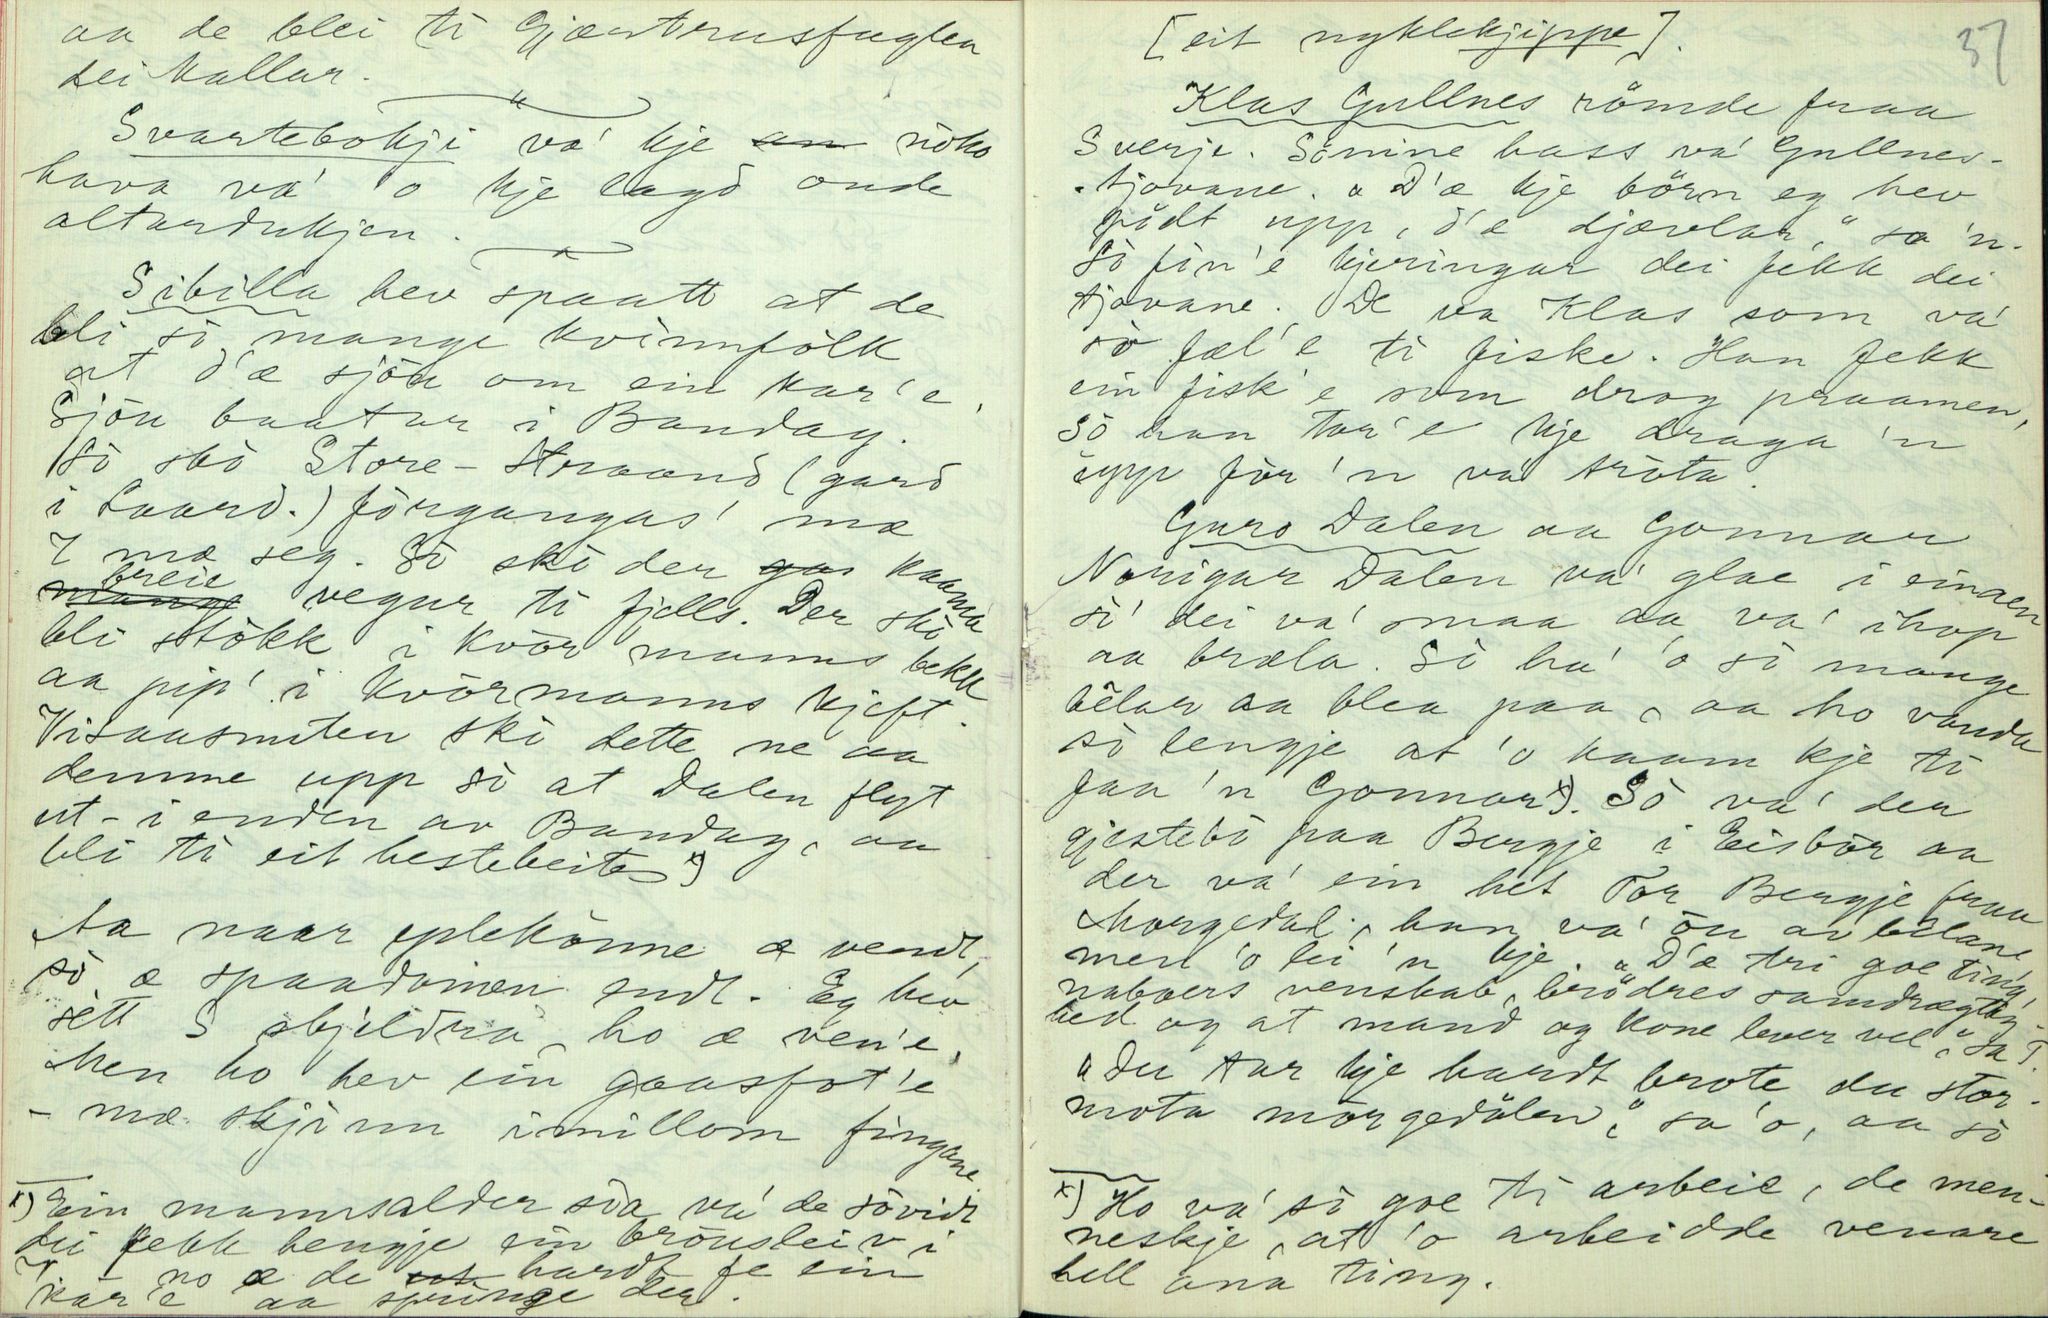 aa de blei ti Gjærtrusfuglen
dei kallar.
Svartebokji va' kje noko
hava va' o kje lagd onde
altardukjen.
Sibilla hev spaatt at de
bli sò mange kvinnfôlk
at d'æ sjôu om ein kar'e,
Sjôu baatar i Bandag.
Sò skò Store-Straand (gard
i Laard.) fôrgangas' mæ
7 mæ seg. Sò ski der kaama
breie vegar ti fjells. Der ski
bli stôkk i kvòr manns bekk
aa pip' i kvòrmanns kjeft.
Visaasnuten ski dette ne aa
demme upp sò at Dalen flyt
ut-i enden av Bandag, aa
bli ti eit hestebeite x)
Aa naar eplekônne æ vendt,
sò æ spaadomen endt. Eg hev
sètt S skjildra, ho æ ven'e,
Men ho hev ein gaasfot'e
- mæ skjinn imillom fingane.
x) Ein mannsalder sia va' de sòvidt
dei fekk hengje ein brôusleiv i
7, no æ de hardt fe ein
kar'e aa springe der.
[eit nyklekjippe].
37
Klas Gullnes rômde fraa
Sverje. Sònine hass va' Gullnes-
-tjovane. "D'æ kje bôrn eg hev
födt upp, d'æ djævlar," sa 'n.
Sò fin'e kjeringar dei fekk dei
tjovane. De va Klas som va'
sò fæl'e ti fiske. Han fekk
ein fisk'e som drog praamen,
sò han tor'e kje draga 'n
upp fòr 'n va tròta.
Guro Dalen aa Gonnar
Norigar Dalen va' glae i einaen
si' dei va' smaa aa va' ihop
aa bræla. Sò ha' 'o sò mange
bêlar aa blea paa, aa ho vanda
sò lengje at 'o kaam kje ti
faa 'n Gonnar x). Sò va' der
gjestebò paa Bergje i Eisbòr aa
der va' ein het Tor Bergje fraa
Morgedal, han va' ôu av bêlane
men 'o lei 'n kje. "D'æ tri goe ting,
naboers venskab, brödres samdrægtig-
hed og at mand og kone lever vel," sa T.
"Du tar kje hardt brote, du stor-
mota môrgedôlen," sa 'o, aa sò
x) Ho va' sò goe ti arbeie, de men-
neskje, at 'o arbeidde venare
hell ana ting.